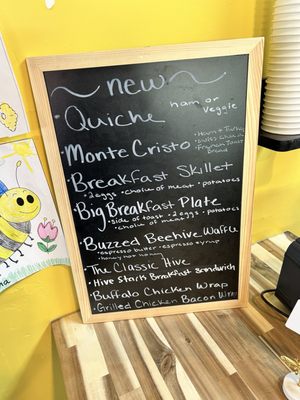 new
Quiche ham or veggie
Monte Cristo
• Ham & Turkey
• Swiss Cheese
• French Toast Bread
Breakfast Skillet
• 2 eggs • choice of meat • potatoes
Big Breakfast Plate
• side of toast • 2 eggs • potatoes
• choice of meat
Buzzed Beehive Waffle
• espresso butter • espresso syrup
• honey
The Classic Hive
• Hive Starts Breakfast Sandwich
Buffalo Chicken Wrap
Grilled Chicken Bacon Wrap